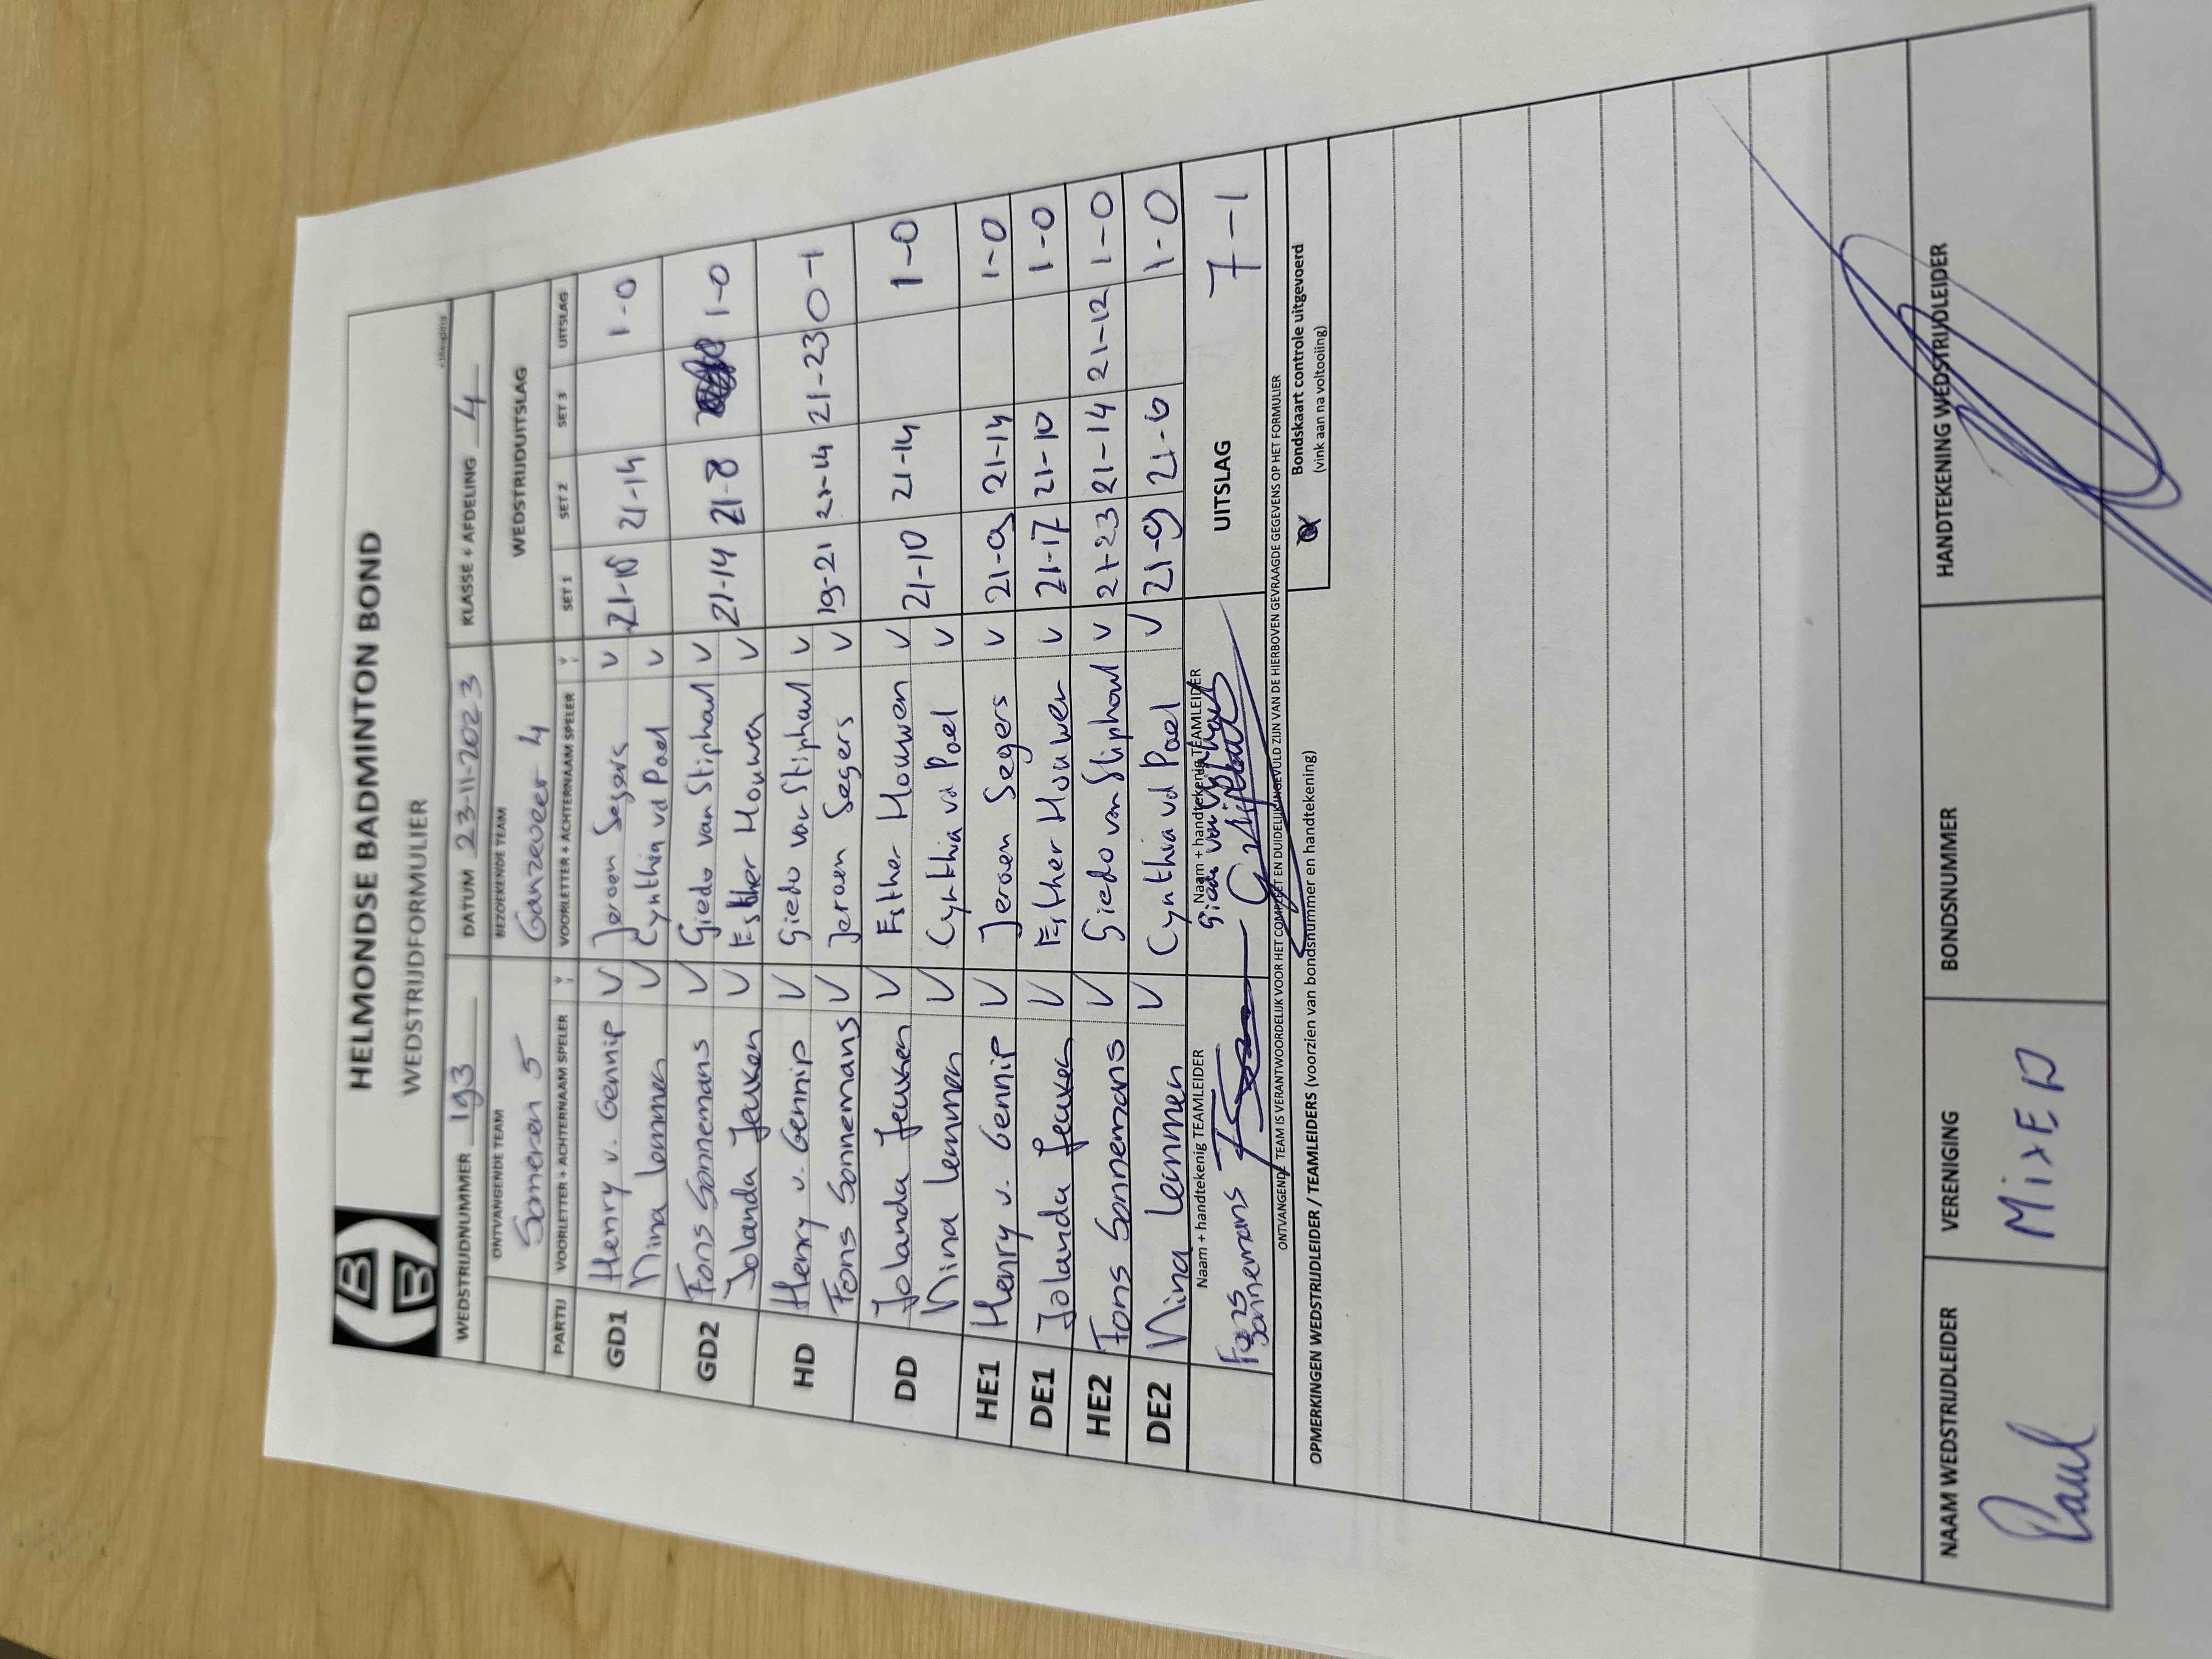 HELMONDSE BADMINTON BOND
WEDSTRIJDFORMULIER
WEDSTRIJDNUMMER 193 DATUM 23-11-2023 KLASSE + AFDELING 4
ONTVANGENDE TEAM BEZOEKENDE TEAM WEDSTRIJDUITSLAG
Someren 5 Ganzeveer 4
PARTIJ VOORLETTER + ACHTERNAAM SPELER V VOORLETTER + ACHTERNAAM SPELER V SET 1 SET 2 SET 3 UITSLAG
GD1 Henry v. Gennip V Jeroen Segers V 21-14 1-0
Nina Lemmen V Cynthia vd Poel V
GD2 Fons Sonnemans V Giedo van Stiphout V 21-14 21-8 1-0
Jolanda Jeuken V Esther Houwen V
HD Henry v. Gennip V Giedo van Stiphout V 19-21 21-14 21-23 0-1
Fons Sonnemans V Jeroen Segers V
DD Jolanda Jeuken V Esther Houwen V 21-10 21-14 1-0
Nina Lemmen V Cynthia vd Poel V
HE1 Henry v. Gennip V Jeroen Segers V 21-9 21-14 1-0
DE1 Jolanda Jeuken V Esther Houwen V 21-17 21-10 1-0
HE2 Fons Sonnemans V Giedo van Stiphout V 21-23 21-14 21-12 1-0
DE2 Nina Lemmen V Cynthia vd Poel V 21-9 21-6 1-0
Naam + handtekenig TEAMLEIDER Naam + handtekenig TEAMLEIDER UITSLAG 7-1
Fons Sonnemans Giedo van Stiphout
ONTVANGENDE TEAM IS VERANTWOORDELIJK VOOR HET COMPLEET EN DUIDELIJK INGEVULD ZIJN VAN DE HIERBOVEN GEVRAAGDE GEGEVENS OP HET FORMULIER
OPMERKINGEN WEDSTRIJDLEIDER / TEAMLEIDERS (voorzien van bondsnummer en handtekening)
Bondskaart controle uitgevoerd
(vink aan na voltooling)
NAAM WEDSTRIJDLEIDER VERENIGING BONDSNUMMER HANDTEKENING WEDSTRIJDLEIDER
Paul MixED